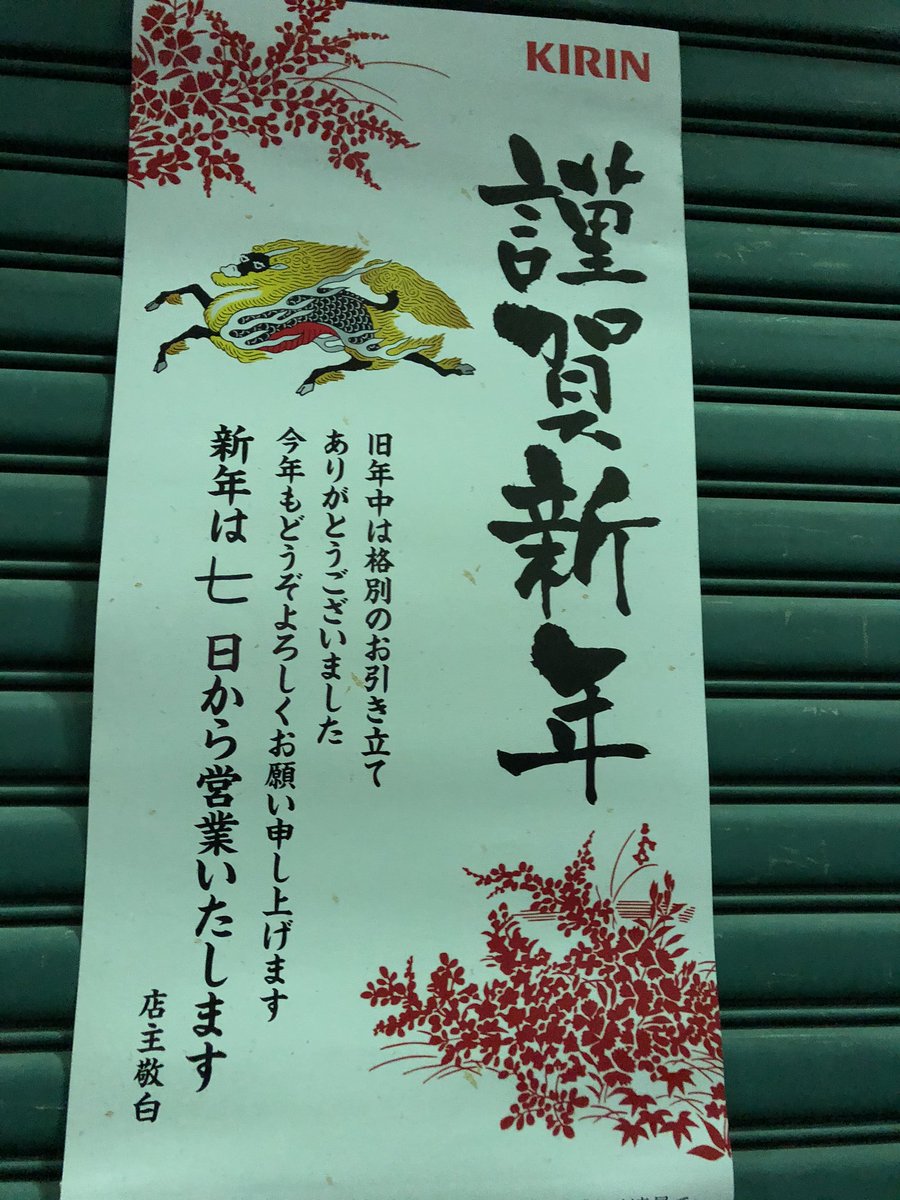 KIRIN
謹賀新年
旧年中は格別のお引き立て
ありがとうございました
今年もどうぞよろしくお願い申し上げます
新年は七日から営業いたします
店主敬白